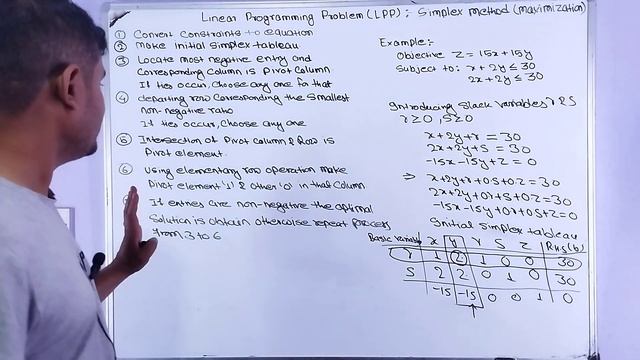 Linear Programming Problem (LPP): Simplex method (maximization)
① Convert constraints to equation
② Make initial simplex tableau
③ Locate most negative entry and
corresponding column is Pivot Column
If ties occur, choose any one for that
④ departing row corresponding the smallest
non-negative ratio
If ties occur, choose any one
⑤ Intersection of Pivot column & Row is
Pivot element.
⑥ Using elementary row operation make
Pivot element '1' & other '0' in that column
If entries are non-negative the optimal
Solution is obtain otherwise repeat process
from 3 to 6
Example:-
Objective Z = 15x + 15y
Subject to: x + 2y ≤ 30
2x + 2y ≤ 30
Introducing slack variables r & s
r ≥ 0, s ≥ 0
x + 2y + r = 30
2x + 2y + s = 30
-15x - 15y + z = 0
⇒ x + 2y + r + 0.s + 0.z = 30
2x + 2y + 0r + s + 0z = 30
-15x - 15y + 0r + 0s + z = 0
Initial simplex tableau
Basic variable x y r s z RHS(b)
r 1 2 1 0 0 30
s 2 2 0 1 0 30
-15 -15 0 0 1 0